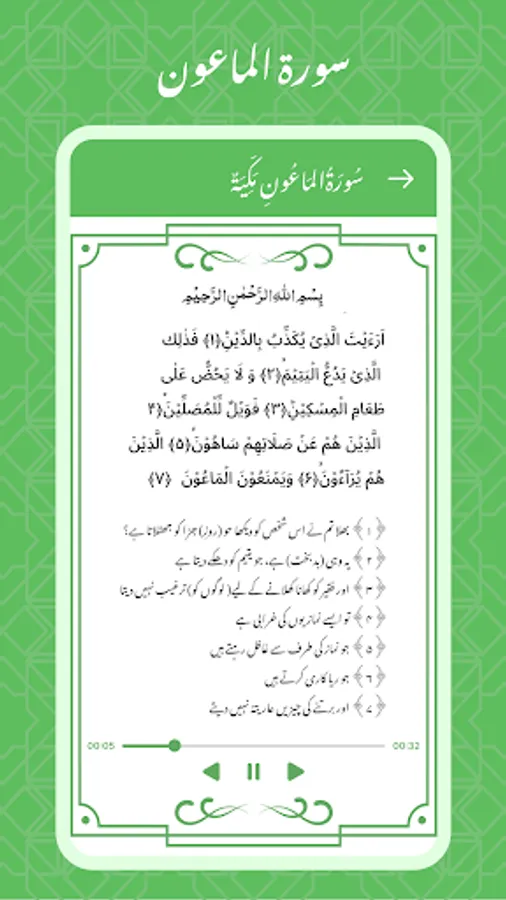 سورۃ الماعون
سُورَةُ المَاعُونِ مَكِيَّةٌ
بِسْمِ اللّٰهِ الرَّحْمٰنِ الرَّحِيْمِ
اَرَءَيْتَ الَّذِىْ يُكَذِّبُ بِالدِّيْنِؕ‏﴿۱﴾ فَذٰلِكَ
الَّذِىْ يَدُعُّ الْيَتِيْمَۙ‏﴿۲﴾ وَ لَا يَحُضُّ عَلٰى
طَعَامِ الْمِسْكِيْنِؕ‏﴿۳﴾ فَوَيْلٌ لِّلْمُصَلِّيْنَۙ‏﴿۴
الَّذِيْنَ هُمْ عَنْ صَلَاتِهِمْ سَاهُوْنَۙ‏﴿۵﴾ الَّذِيْنَ
هُمْ يُرَآءُوْنَۙ‏﴿۶﴾ وَيَمْنَعُوْنَ الْمَاعُوْنَ ﴿۷﴾
﴿۱﴾ بھلا تم نے اس شخص کو دیکھا جو (روزِ) جزا کو جھٹلاتا ہے؟
﴿۲﴾ یہ وہی (بدبخت) ہے، جو یتیم کو دھکے دیتا ہے
﴿۳﴾ اور فقیر کو کھانا کھلانے کے لیے( لوگوں کو) ترغیب نہیں دیتا
﴿۴﴾ تو ایسے نمازیوں کی خرابی ہے
﴿۵﴾ جو نماز کی طرف سے غافل رہتے ہیں
﴿۶﴾ جو ریا کاری کرتے ہیں
﴿۷﴾ اور برتنے کی چیزیں عاریتہ نہیں دیتے
00:05 00:32